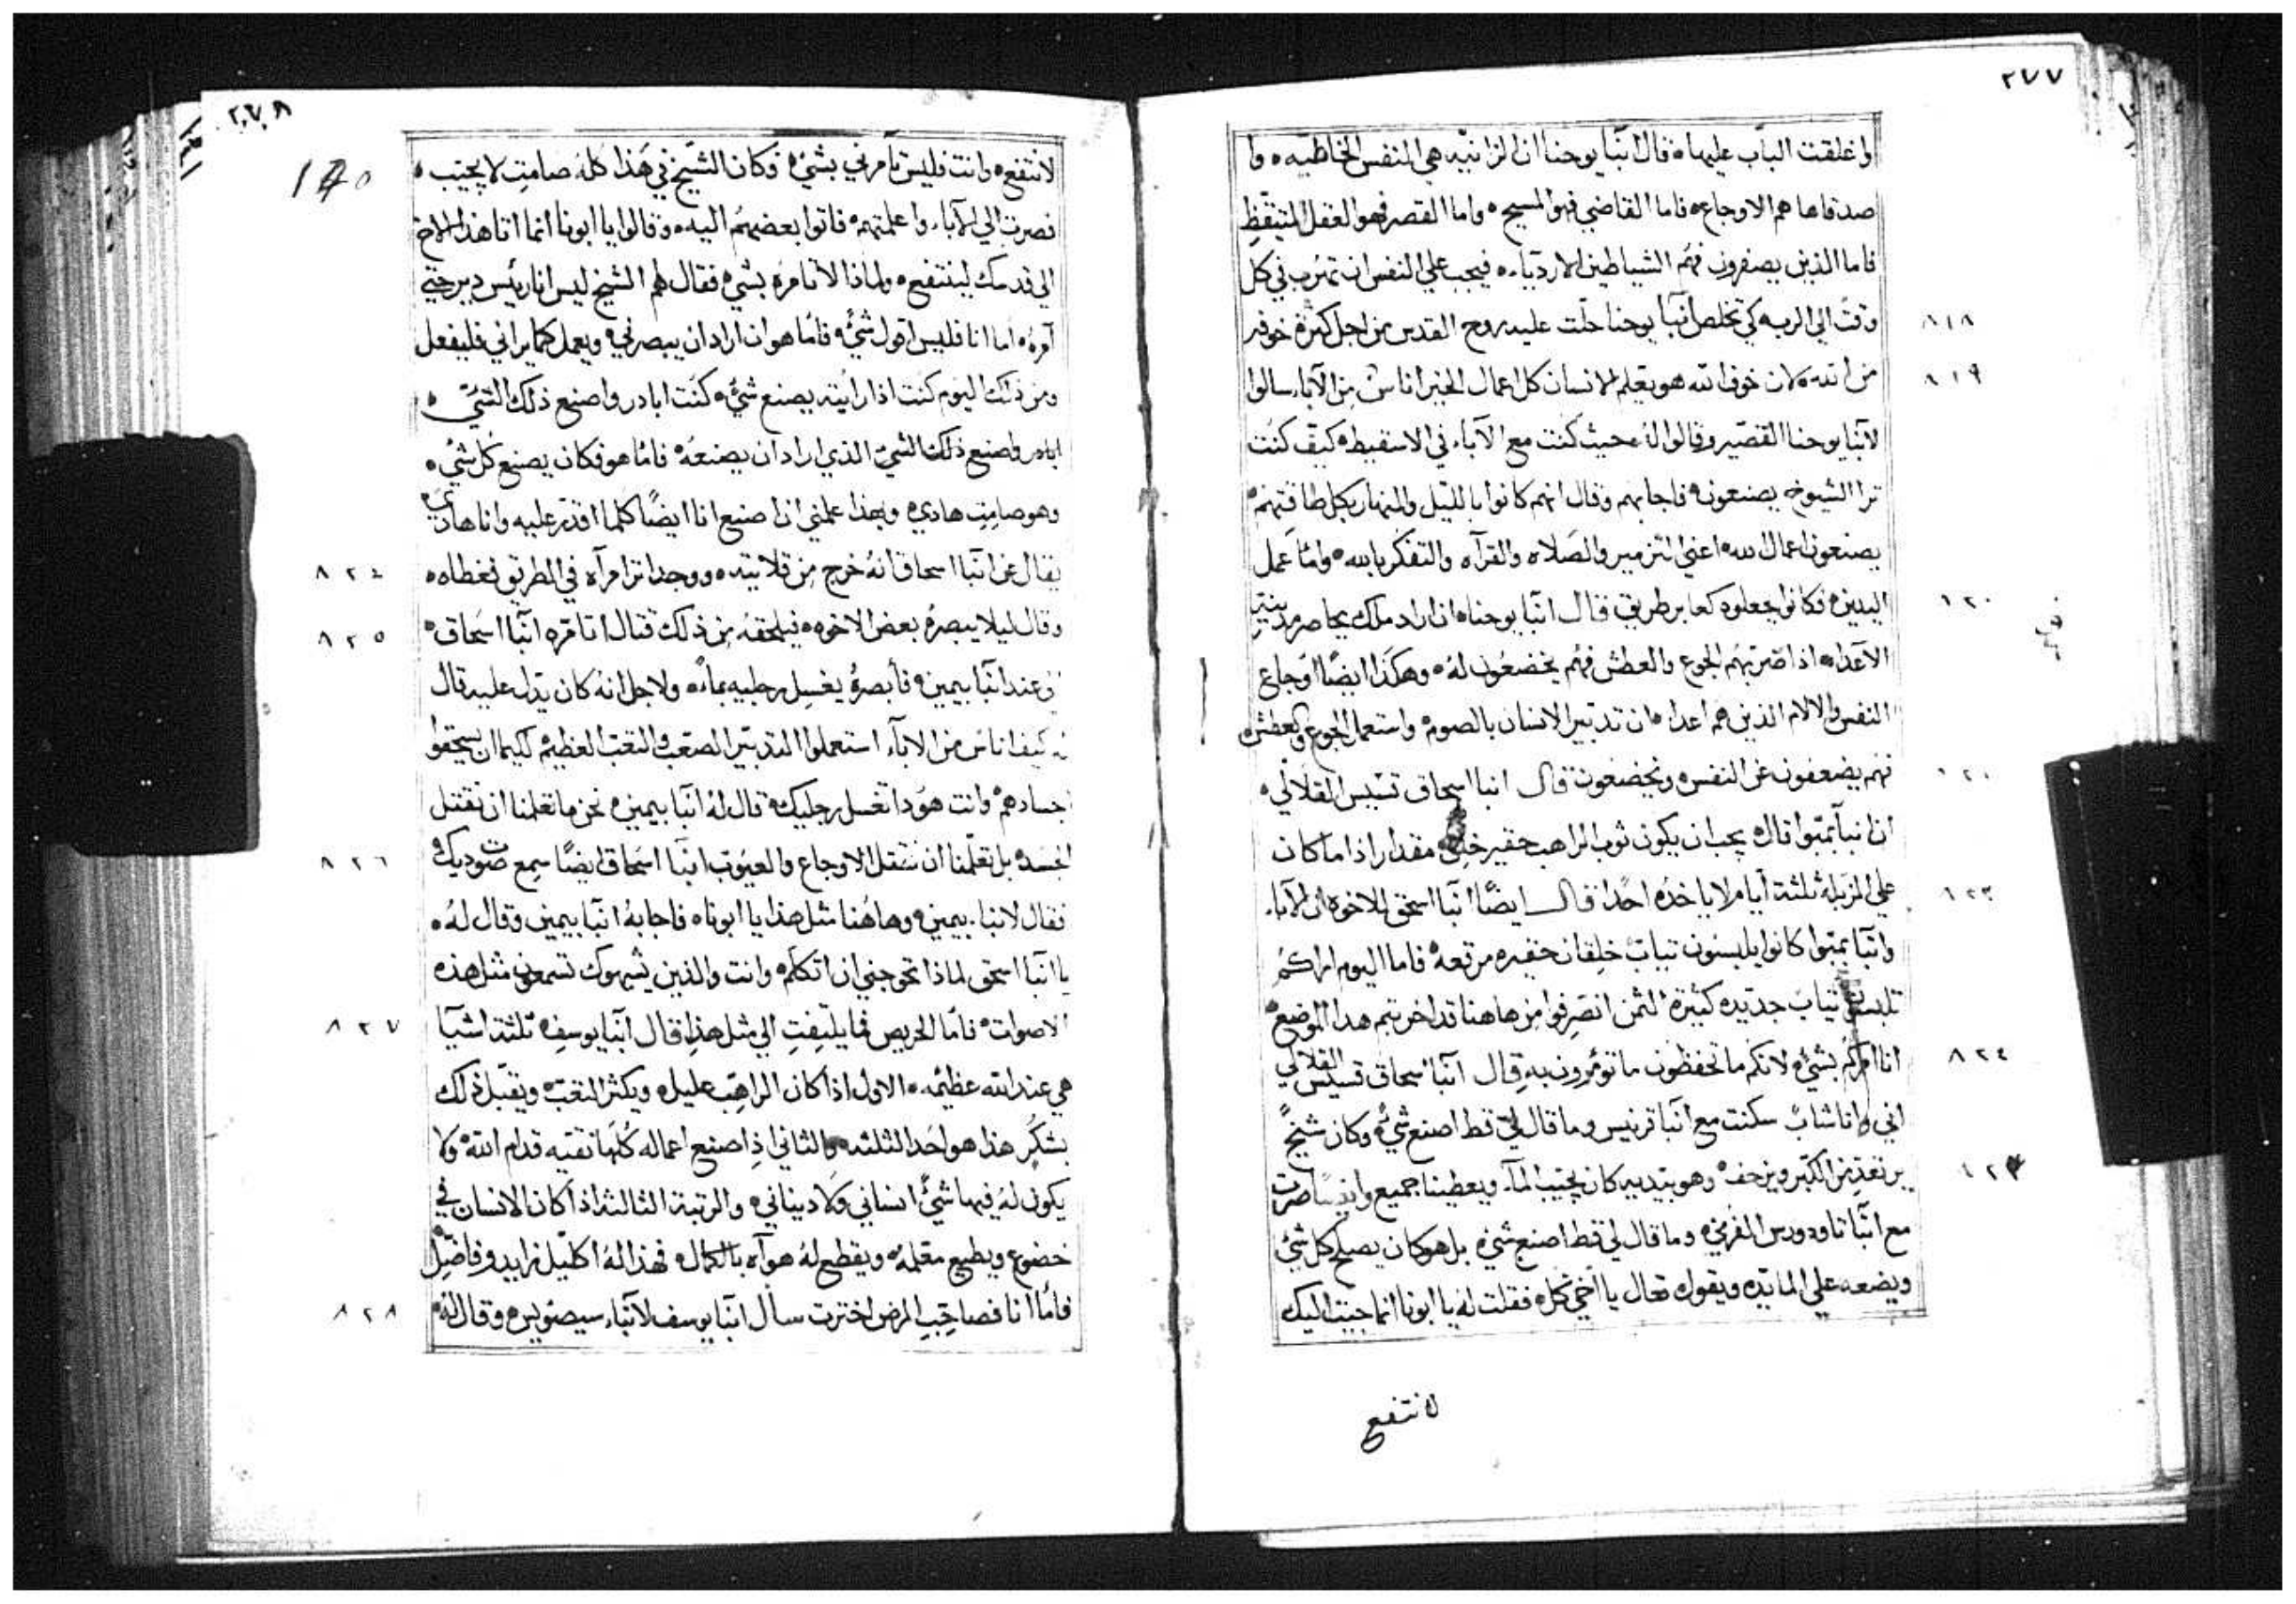 ٢٧٧
واغلقت الباب عليها ه قال انبا يوحنا ان الزانيه هي النفس الخاطيه ه وا
صدقاها هم الاوجاع ه فاما القاضي فهو المسيح ه واما القصر فهو العقل المتيقظ
فاما الذين يصفرون فهم الشياطين الاردياء ه فيجب علي النفس ان تهرب في كل
وقت الي الرب ه كي تخلص انبا يوحنا حلت عليه روح القدس من اجل كثرة خوفه
٨١٨
من الله ه لان خوف الله هو يعلم الانسان كل اعمال الخير اناس من الآباء سالوا
٨١٩
لآنبا يوحنا القصير وقالوا له ه حيث كنت مع الآباء في الاسقيط ه كيف كنت
ترا الشيوخ يصنعون ه فاجابهم وقال انهم كانوا بالليل والنهار بكل طاقتهم ه
يصنعون اعمال الله ه اعني التزمير والصلاه والقرآه والتفكر بالله ه واما عمل
اليدين ه فكانوا يجعلوه كعابر طريق قال انبا يوحنا ه ان اراد ملك يحاصر مدينة
١٢٠
الآعداه اذا ضربهم الجوع والعطش فهم يخضعون له ه وهكذا ايضًا اوجاع
النفس والالام الذين هم اعداه ان تدبير الانسان بالصوم ه واستعمل الجوع والعطش ه
فهم يضعفون عن النفس ه ويخضعون ه قال انبا اسحاق قسيس القلالي ه
ان انبا بمبوا قال ه يجب ان يكون ثوب الراهب حقير خلق مقدار اذا ما كان
علي المزبله ثلثة أيام لا ياخده احدًا قال ايضًا انبا اسحق للاخوه ان الآباء
٨٢٣
وانبا بمبوا كانوا يلبسون تياب خلقان حقيره مرقعه ه فاما اليوم اراكم
تلبسون تياب جديده كثيرة الثمن انصرفوا من هاهنا قد اخربتم هدا الموضع ه
انا امركم بشيء لانكم ما تحفظون ما تؤمرون به قال آنبا اسحاق قسيس القلالي
٨٢٤
اني وانا شاب سكنت مع انبا قرنيس وما قال لي قط اصنع شيء وكان شيخً
يرتعد من الكبر ويزحف ه وهو بيديه كان يجيب المآ ويعطينا جميع وايضًا صرت
مع انبا تاودورس الفرمي ه وما قال لي قط اصنع شيء بل هو كان يصلح كل شي
ويضعه علي المايده ويقول ه تعال يا اخي كل ه فقلت له يا ابونا انما جيت اليك
لانتفع
٢٧٨
لانتفع ه وانت فليس تآمرني بشيء ه فكان الشيخ في هذا كله صامت لا يجيب ه
فصرت الي الآباء واعلمتهم ه فاتوا بعضهم اليه ه وقالوا يا ابونا انما اتا هذا الاخ
الي قدسك لينتفع ه ولماذا لا تامره بشي ه فقال لهم الشيخ ليس انا رئيس دير حتي
آمره ه اما انا فليس اقول شيء ه فاما هو ان اراد ان يبصرني ه ويعمل كما يراني فليفعل
ومن ذلك اليوم كنت اذا رايته يصنع شيء ه كنت ابادر واصنع ذلك الشي ه
ابادر واصنع ذلك الشي الذي اراد ان يصنعه ه فاما هو فكان يصنع كل شي ه
وهو صامت هادي ه وبهذا علمني ان اصنع انا ايضًا كلما اقدر عليه وانا هادي ه
يقال عن انبا اسحاق انه خرج من قلايته ه ووجد اتر امرآه في الطريق فغطاه ه
وقال ليلا يبصره بعض الاخوه ه فيلحقه من ذلك قتال اتا مره انبا اسحاق ه
٨٢٥
عند انبا بيمين ه فأبصره يغسل رجليه بماء ه ولاجل انه كان يدل عليه قال
له كيف اناس من الاباء استعملوا التدبير الصعب والتعب العظيم كيما ان يسحقوا
اجسادهم ه وانت هودا تغسل رجليك ه قال له انبا بيمين ه نحن ما تعلمنا ان نقتل
الجسد ه بل تعلمنا ان نقتل الاوجاع والعيوب انبا اسحاق ايضًا سمع صوت ديك ه
٨٢٦
فقال لانبا بيمين ه وهاهنا مثل هذا يا ابونا ه فاجابه انبا بيمين وقال له ه
يا انبا اسحق لماذا تحوجني ان اتكلم ه وانت والذين يشبهوك تسمعون مثل هذه
الاصوات ه فاما الحريص فما يلتفت الي مثل هذا قال انبا يوسف ه ثلثة اشيآ
٨٢٧
هي عند الله عظيمه ه الاول اذا كان الراهب عليل ه ويكثر التعب ه ويقبل ذلك
بشكر هذا هو احد الثلثه ه والثاني اذا صنع اعماله كلها نقيه قدام الله ه ولا
يكون له فيها شيء انساني ولا ديناني ه والرتبة الثالثه اذا كان الانسان في
خضوع ويطيع معلمه ه ويقطع له هوآه بالكمال ه فهذا له اكليل زايد وفاضل
فاما انا فصاحب المرض اخترت سأل انبا يوسف لآنباء سيصويس ه وقال له ه
٨٢٨